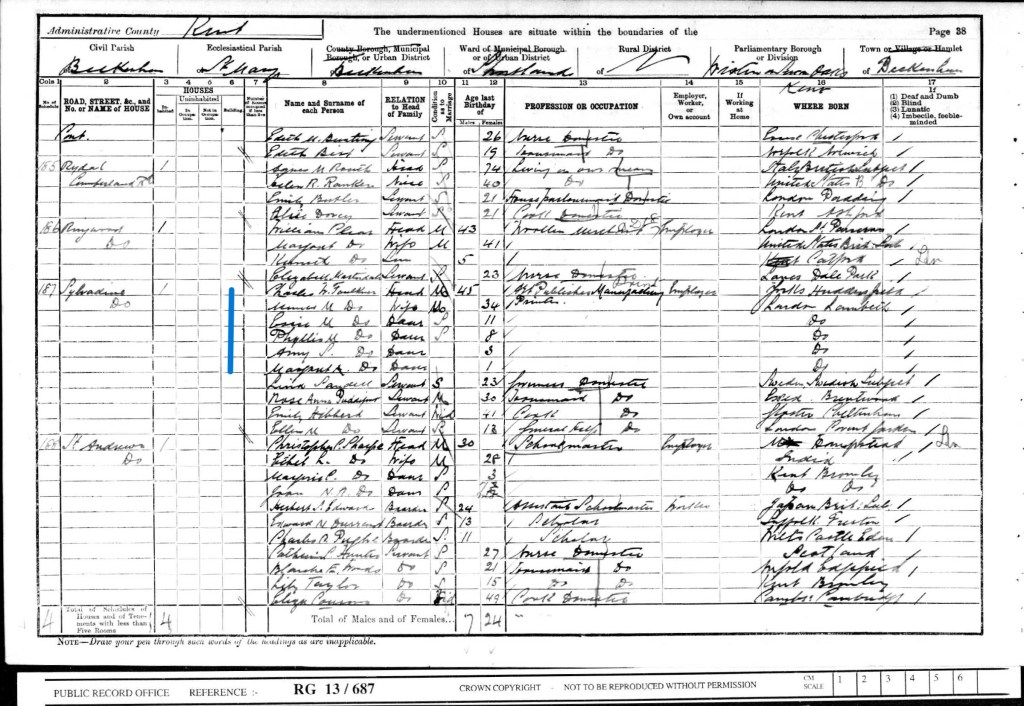 Administrative County Kent The undermentioned Houses are situate within the boundaries of the Page 38
Civil Parish Ecclesiastical Parish County Borough, Municipal Borough, or Urban District Ward of Municipal Borough or of Urban District Rural District Parliamentary Borough or Division Town or Village or Hamlet
Beckenham of St Mary Beckenham of of Beckenham
Kent
Cols. 1 2 3 4 5 6 7 8 9 10 11 12 13 14 15 16 17
No. of Schedule ROAD, STREET, &c., and No. or NAME of HOUSE HOUSES Inhabited Uninhabited In Occupation Not in Occupation Building Number of Rooms occupied if less than five Name and Surname of each Person RELATION to Head of Family Condition as to Marriage Age last Birthday of Males Females PROFESSION OR OCCUPATION Employer, Worker, or Own account If Working at Home WHERE BORN If (1) Deaf and Dumb (2) Blind (3) Lunatic (4) Imbecile, feeble-minded
Cont. Edith M. Servant S 26 Nurse Domestic Essex
Edith Bird Servant S 19 Housemaid Do Norfolk Norwich
185 Rydal 1 Agnes M Routh Head 74 Living on own means Italy British Subject
Cumberland Rd Helen R. Rankin Niece S 40 Do United States B Do
Emily Butler Servant S 21 House parlourmaid Domestic London
Alice Servant S 21 Cook Domestic Kent Ashford
186 Ringwood 1 William Head M 43 Woollen Merchant Employer London St Pancras
Do Margaret Do Wife M 41 United States Brit. Sub
Kenneth Do Son 5 Kent Catford
Elizabeth Servant S 23 Nurse Domestic Dale Park
187 Sylvadene 1 Charles W. Faulkner Head M 45 Art Publisher Manufacturing Employer Yorks Huddersfield
Do Minnie M Do Wife M 34 Printer London Lambeth
M Do Daur S 11 Do
Phyllis M Do Daur S 8 Do
Amy S. Do Daur 3 Do
Margaret A. Do Daur 1 Do
Servant S 23 Governess Domestic Sweden Swedish Subject
Rose Anna Servant M Housemaid Do Essex Brentwood
Emily Hibberd Servant Wid 41 Cook Do Gloster Cheltenham
Ellen M Do Servant S 13 General help Do London Covent Garden
188 St Andrews 1 Christopher P. Sharpe Head M 30 Schoolmaster Employer
Do Ethel L. Do Wife M 28 India
Marjorie C. Do Daur S 3 Kent Bromley
Joan N. A. Do Daur S Do Do
Herbert S. Edward Boarder S 24 Assistant Schoolmaster Worker Japan Brit. Sub.
Edward N Durrant Boarder S 13 Scholar Suffolk
Charles A. Pughe Boarder S 11 Scholar Wilts Castle Eden
Catherine C. Hunter Servant S 27 Nurse Domestic Scotland
Blanche E. Woods Do S 21 Housemaid Do
Lily Taylor Do S 15 Do Do Kent Bromley
Eliza Do Wid 49 Cook Domestic Cambs. Cambridge
4 Total of Schedules of Houses and of Tenements with less than Five Rooms 4 Total of Males and of Females... 7 24
NOTE—Draw your pen through such words of the headings as are inapplicable.
PUBLIC RECORD OFFICE REFERENCE :- RG 13 / 687 CROWN COPYRIGHT - NOT TO BE REPRODUCED WITHOUT PERMISSION CM SCALE 1 2 3 4 5 6